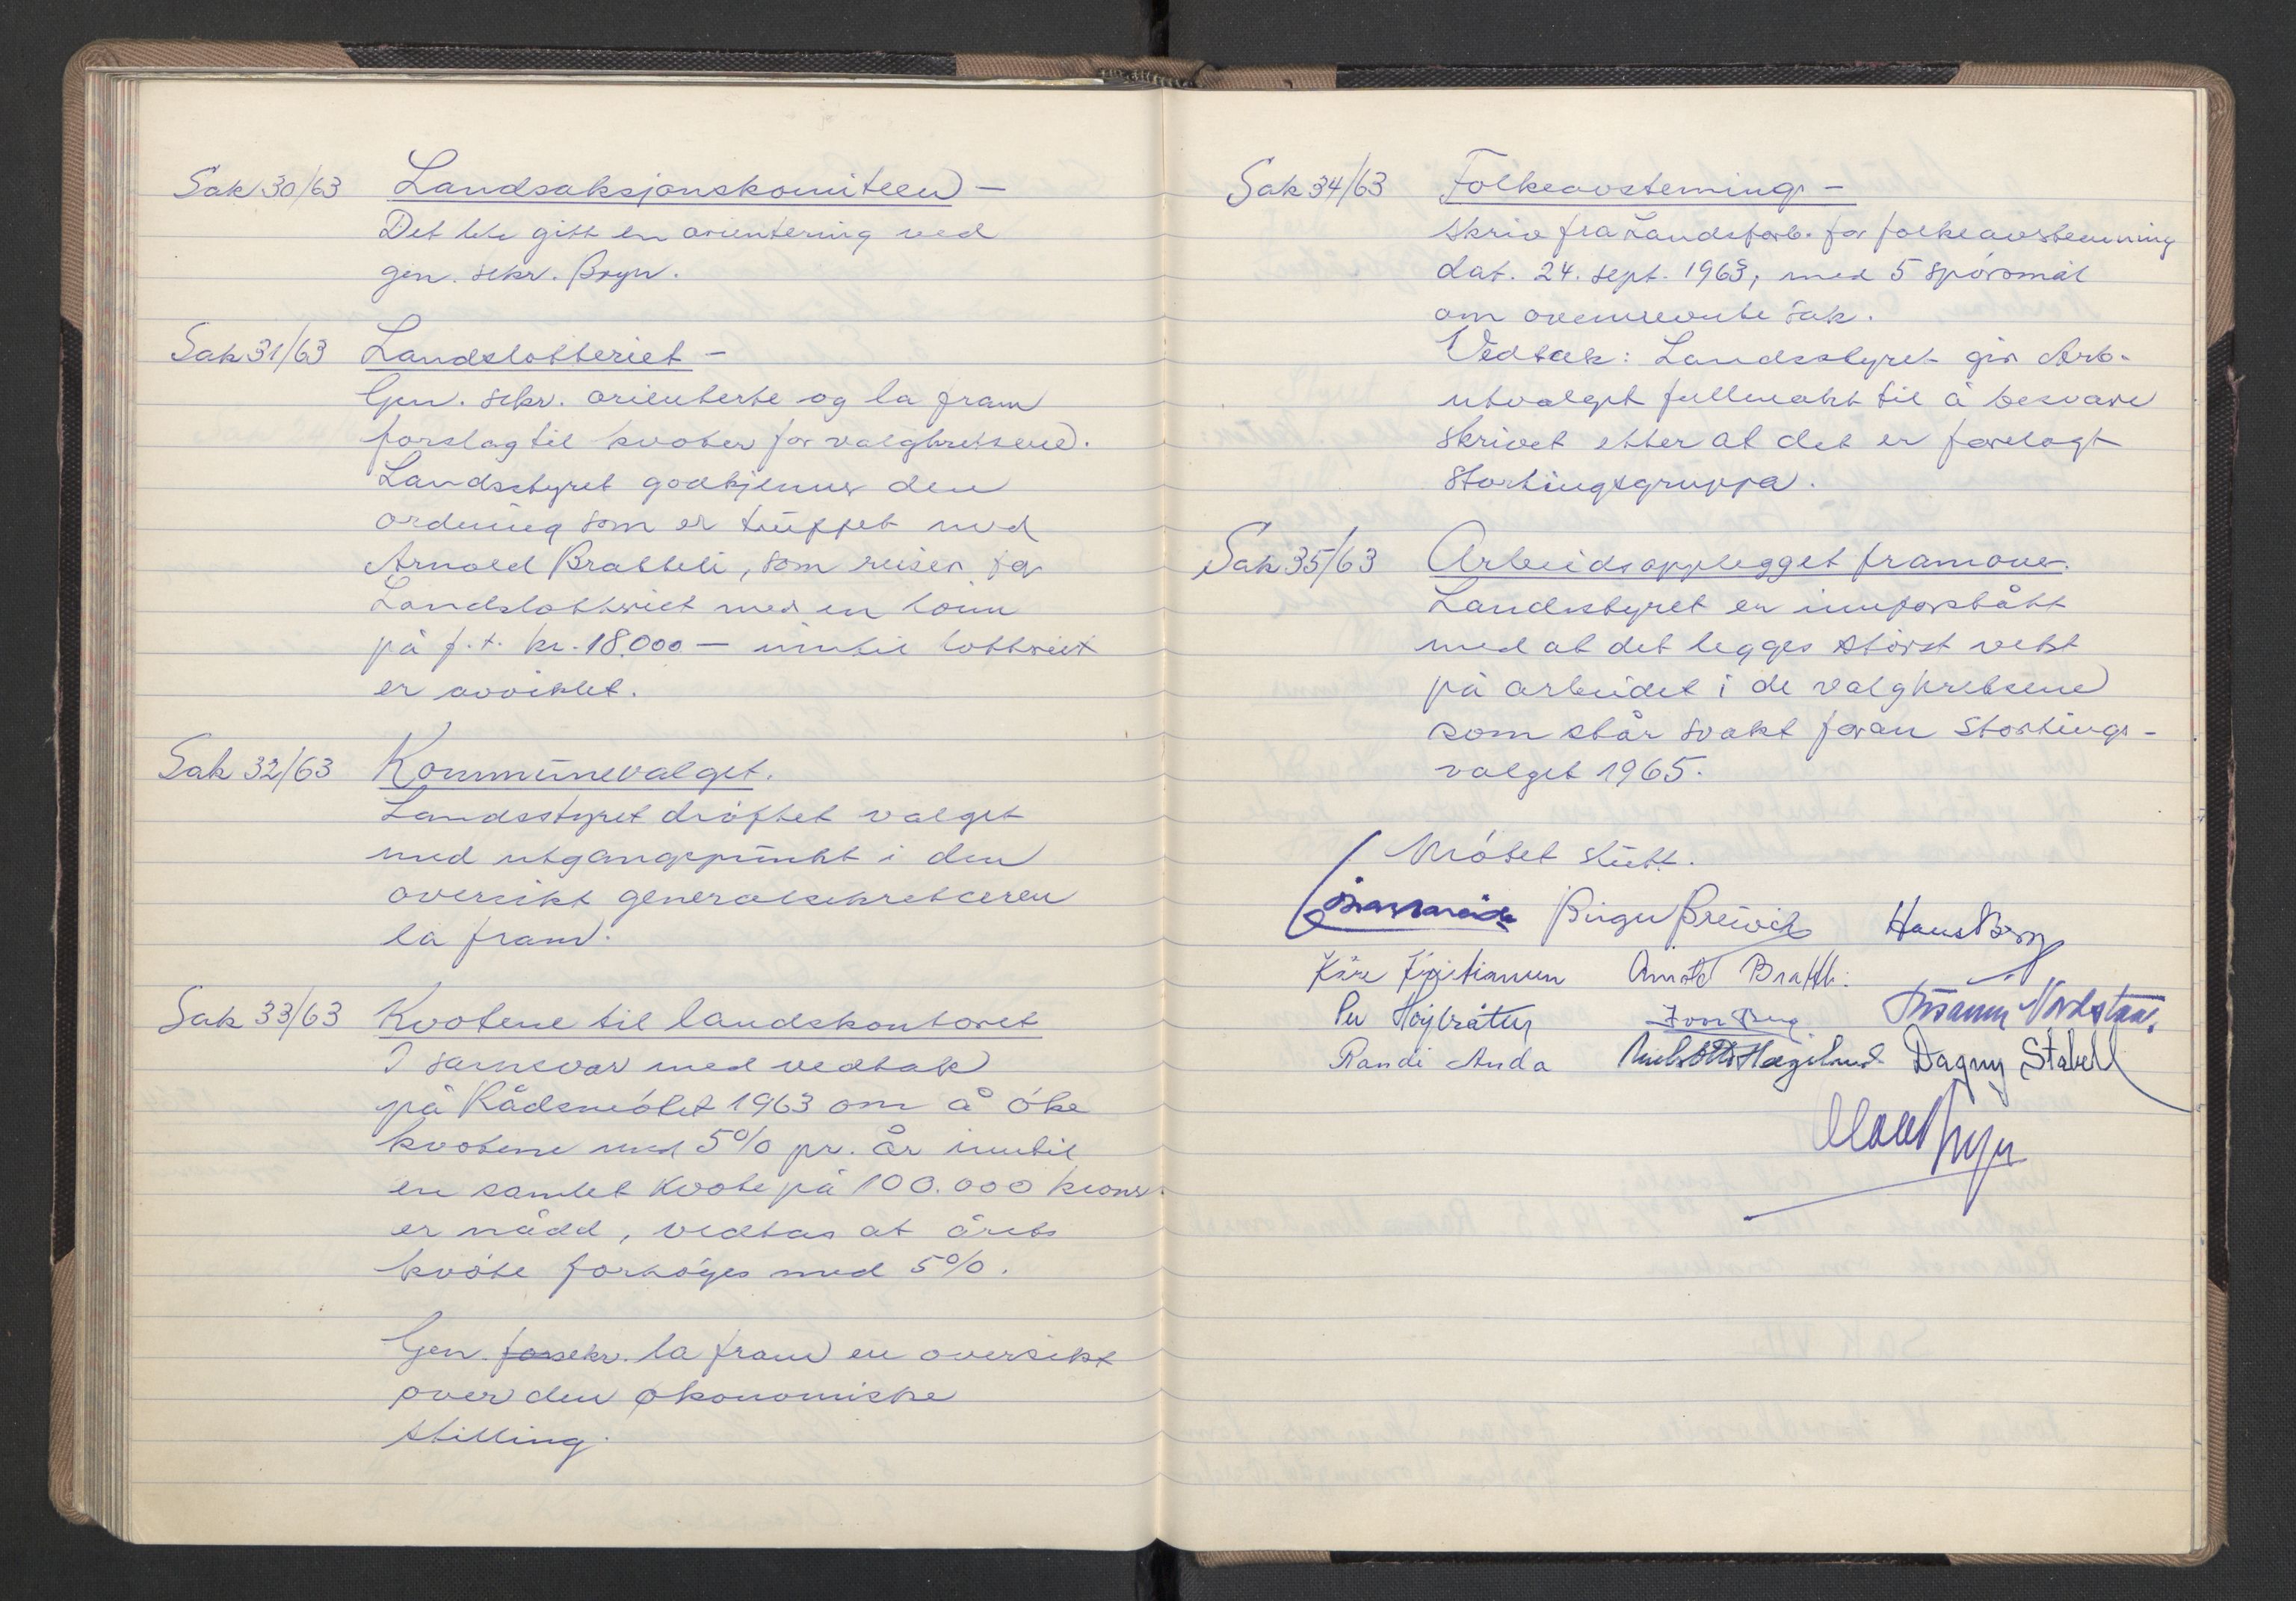 Sak 30/63 Landsaksjonskomiteen –
Det ble gitt en orientering ved
gen. sekr. Bryn.
Sak 31/63 Landslotteriet –
Gen. sekr. orienterte og la fram
forslag til kvoter for valgkretsene.
Landsstyret godkjenner den
ordning som er truffet med
Arnold Bratteli, som reiser for
Landslotteriet med en lønn
på f.t. kr. 18.000 – inntil lotteriet
er avviklet.
Sak 32/63 Kommunevalget.
Landsstyret drøftet valget
med utgangspunkt i den
oversikt generalsekretæren
la fram.
Sak 33/63 Kvotene til landskontoret
I samsvar med vedtak
på Rådsmøtet 1963 om å øke
kvotene med 5% pr. år inntil
en samlet kvote på 100.000 kroner
er nådd, vedtas at årets
kvote forhøyes med 5%.
Gen. sekr. la fram en oversikt
over den økonomiske
stilling.
Sak 34/63 Folkeavstemning –
Skriv fra Landsforb. for folkeavstemning
dat. 24. sept. 1963, med 5 spørsmål
om ovennevnte sak.
Vedtak: Landsstyret gir Arb.
utvalget fullmakt til å besvare
skrivet etter at det er forelagt
Stortingsgruppa.
Sak 35/63 Arbeidsopplegget framover.
Landsstyret er innforstått
med at det legges størst vekt
på arbeidet i de valgkretsene
som står svakt foran Stortings-
valget 1965.
Møtet slutt.
Birger Breivik Hans Berg
Kåre Kristiansen Arnold Bratteli
Per Høybråten
Randi Anda Dagny Stabell